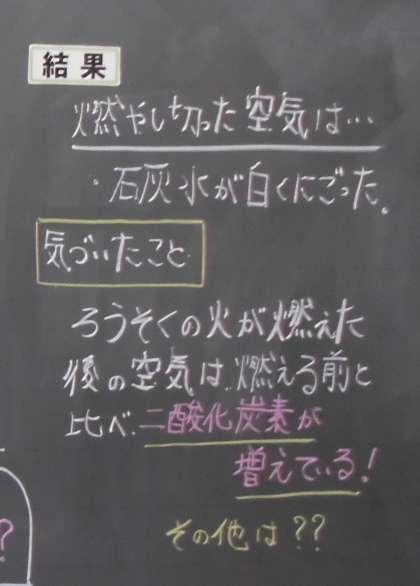 結果
燃やし切った空気は…
・石灰水が白くにごった。
気づいたこと
ろうそくの火が燃えた
後の空気は、燃える前と
比べ、二酸化炭素が
増えている!
その他は??
?